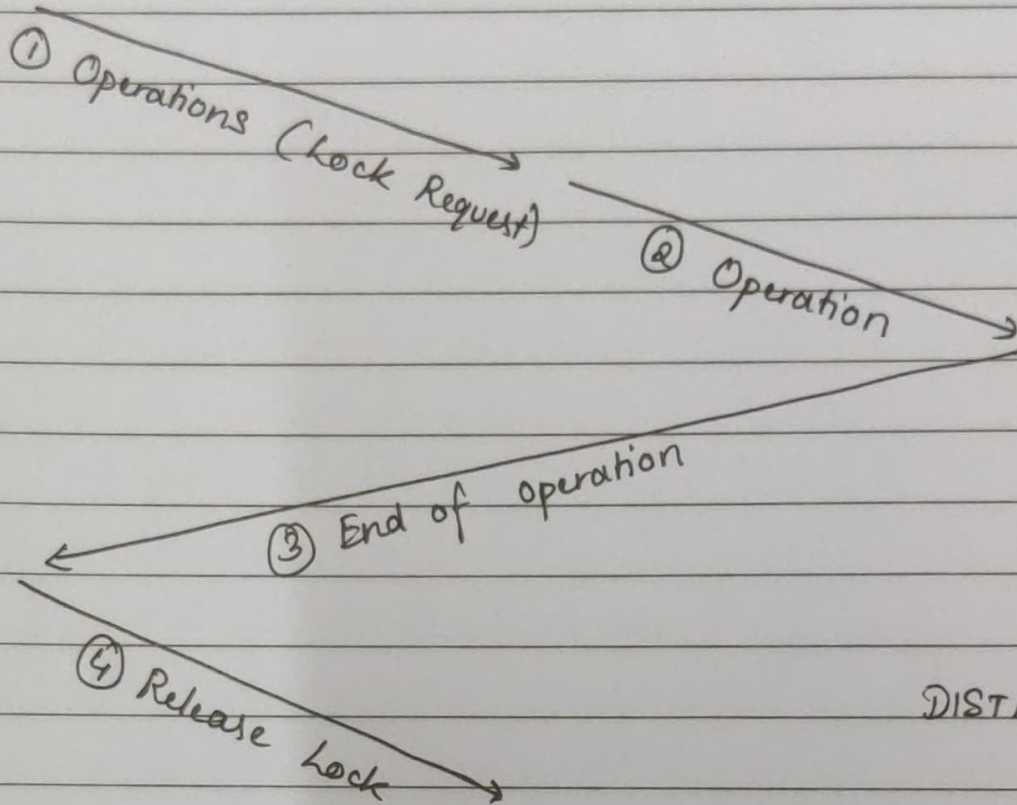 ① Operations (Lock Request)
② Operation
③ End of operation
④ Release Lock
DIST